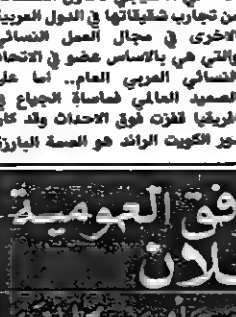 من تجارب شقيقاتها في الدول العربية
الاخرى في مجال العمل النسائي
والتي هي بالاساس عضو في الاتحاد
النسائي العربي العام.. اما على
الصعيد العالمي فماساة الجياع في
افريقيا قفزت فوق الاحداث وقد كان
دور الكويت الرائد هو السمة البارزة
فق العومية
لان